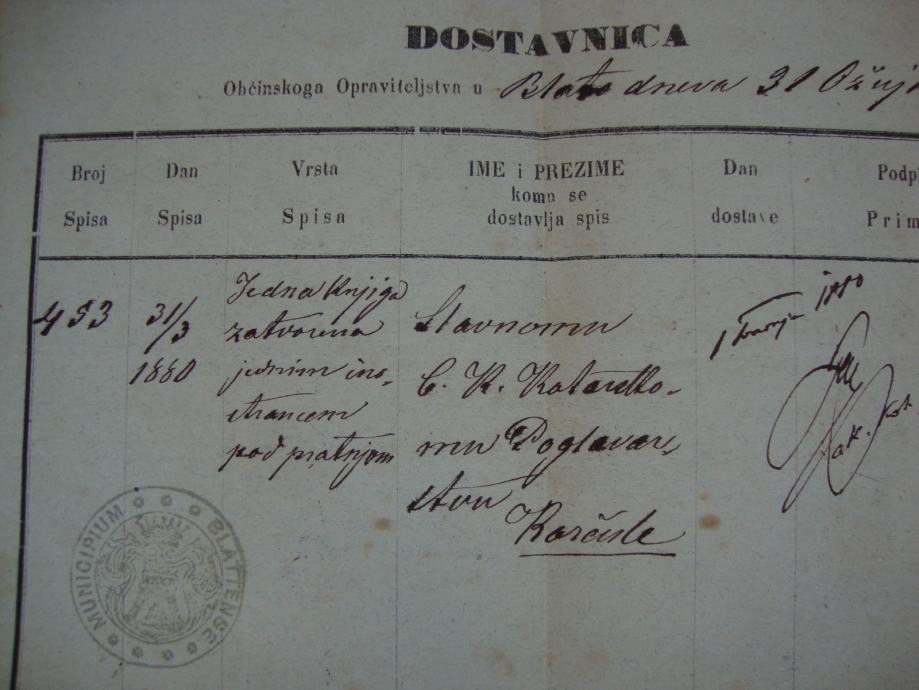 DOSTAVNICA
Občinskoga Opraviteljstva u Blato dneva 31 Ožuj
Broj Spisa
Dan Spisa
Vrsta Spisa
IME i PREZIME
komu se
dostavlja spis
Dan dostave
Podp
Prim
453
31/3
1880
Jedna Knjiga
zatvorena
jednim ino-
strancem
pod pratnjom
Slavnomu
C. K. Kotarsko-
mu Poglavar-
stvu
Korčule
1 Travnja 1880
MUNICIPIUM BLATTENSE